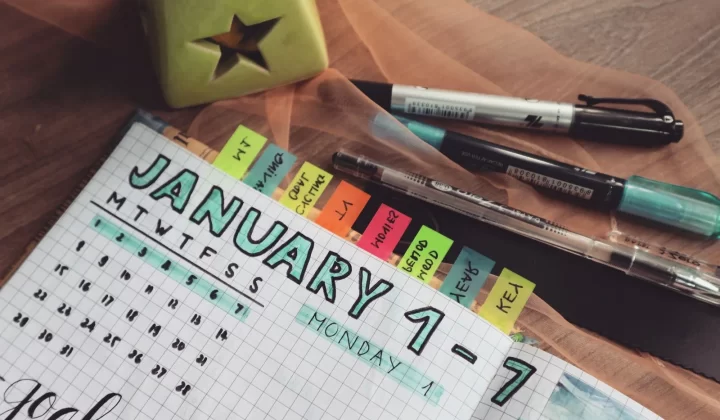 JANUARY 1-7
M T W T F S S
1 2 3 4 5 6 7
8 9 10 11 12 13 14
15 16 17 18 19 20 21
22 23 24 25 26 27 28
29 30 31
MONDAY 1
goal
SAVING
YT
MOVIES
PERIOD
MOOD
YEAR
KEY